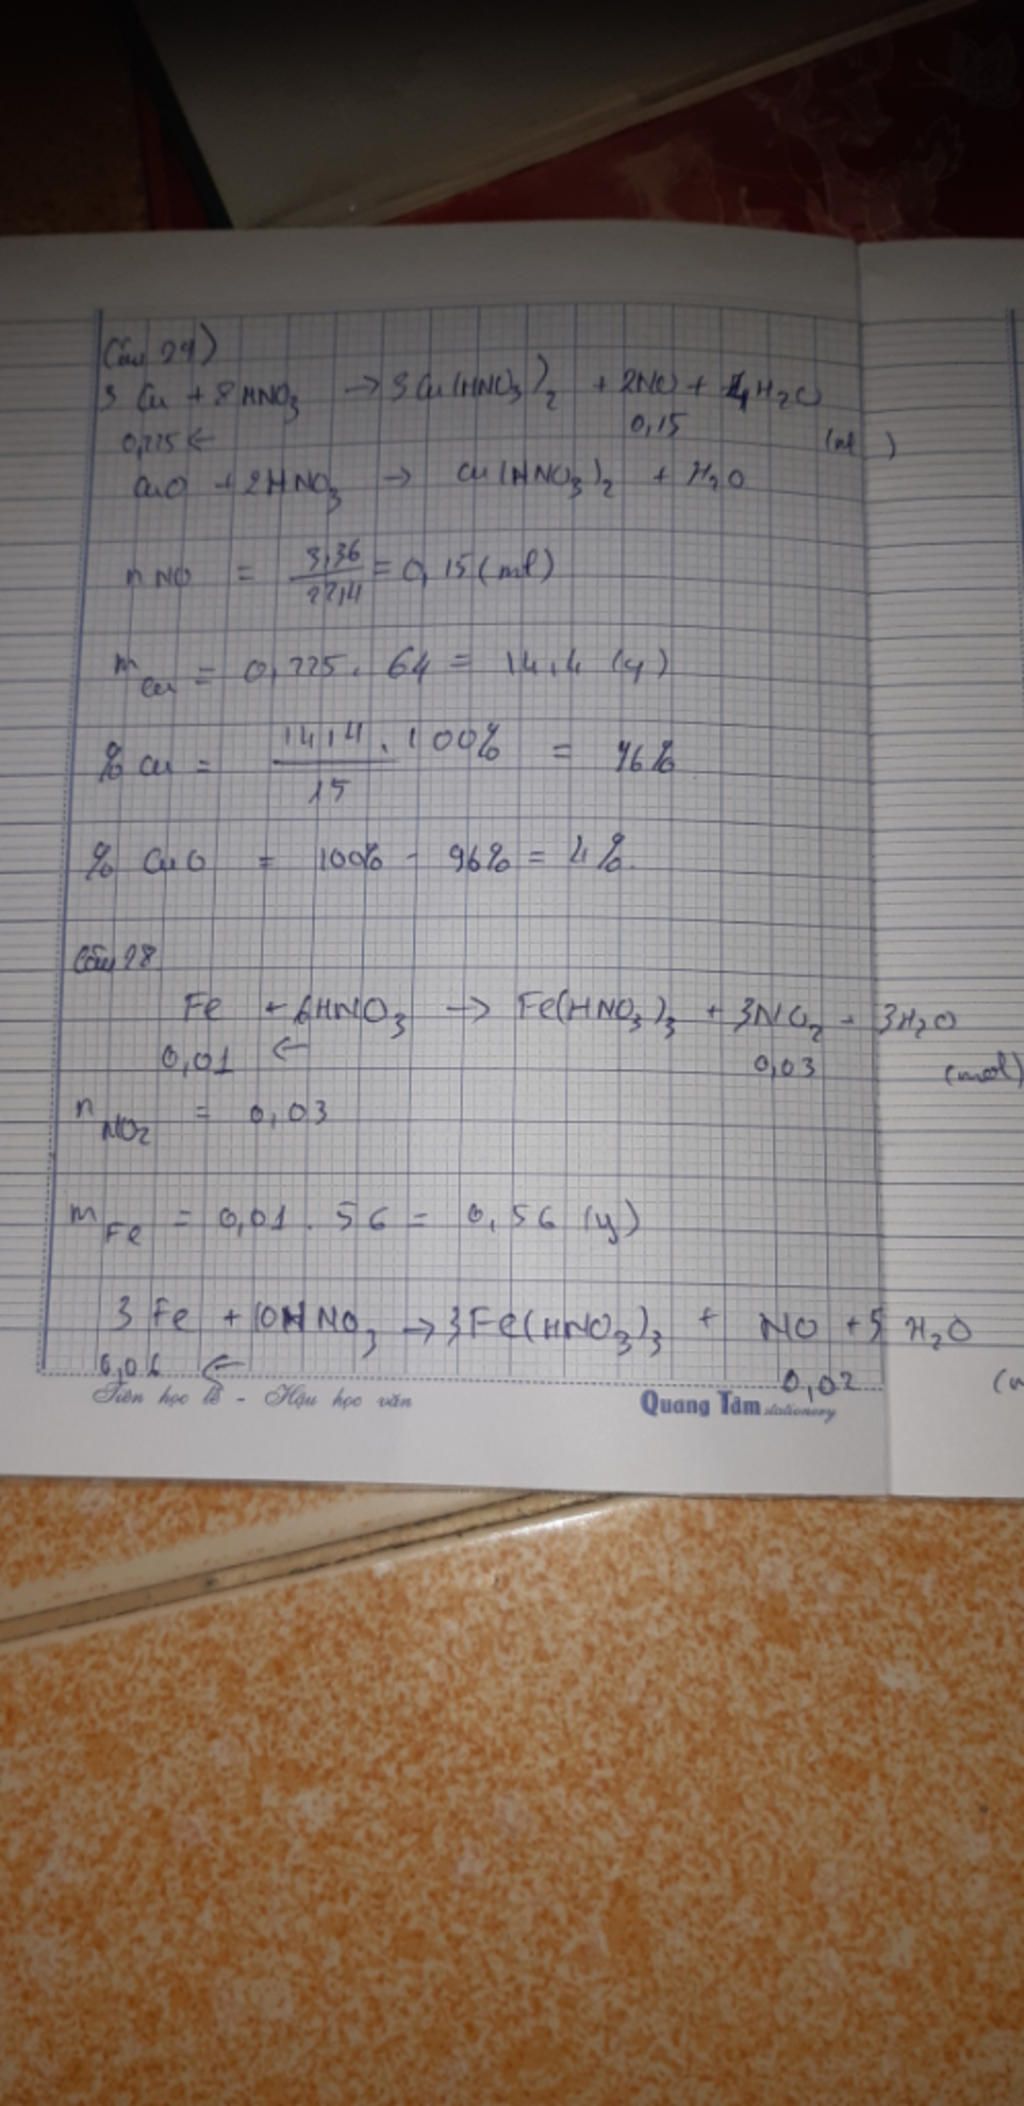 Câu 29)
3 Cu + 8 HNO3 → 3 Cu(HNO3)2 + 2NO + 4H2O
0,225 ← 0,15 (ml)
CuO + 2HNO3 → Cu(HNO3)2 + H2O
nNO = 3,36/22,4 = 0,15 (ml)
mCu = 0,225 . 64 = 14,4 (g)
% Cu = 14,4 . 100% / 15 = 96%
% CuO = 100% - 96% = 4%.
Câu 28
Fe + 6HNO3 → Fe(HNO3)3 + 3NO2 + 3H2O
0,01 ← 0,03 (mol)
nNO2 = 0,03
mFe = 0,01 . 56 = 0,56 (g)
3 Fe + 10HNO3 → 3Fe(HNO3)3 + NO + 5 H2O
0,06 ← 0,02 (m
Tiên học lễ - Hậu học văn Quang Tâm stationery